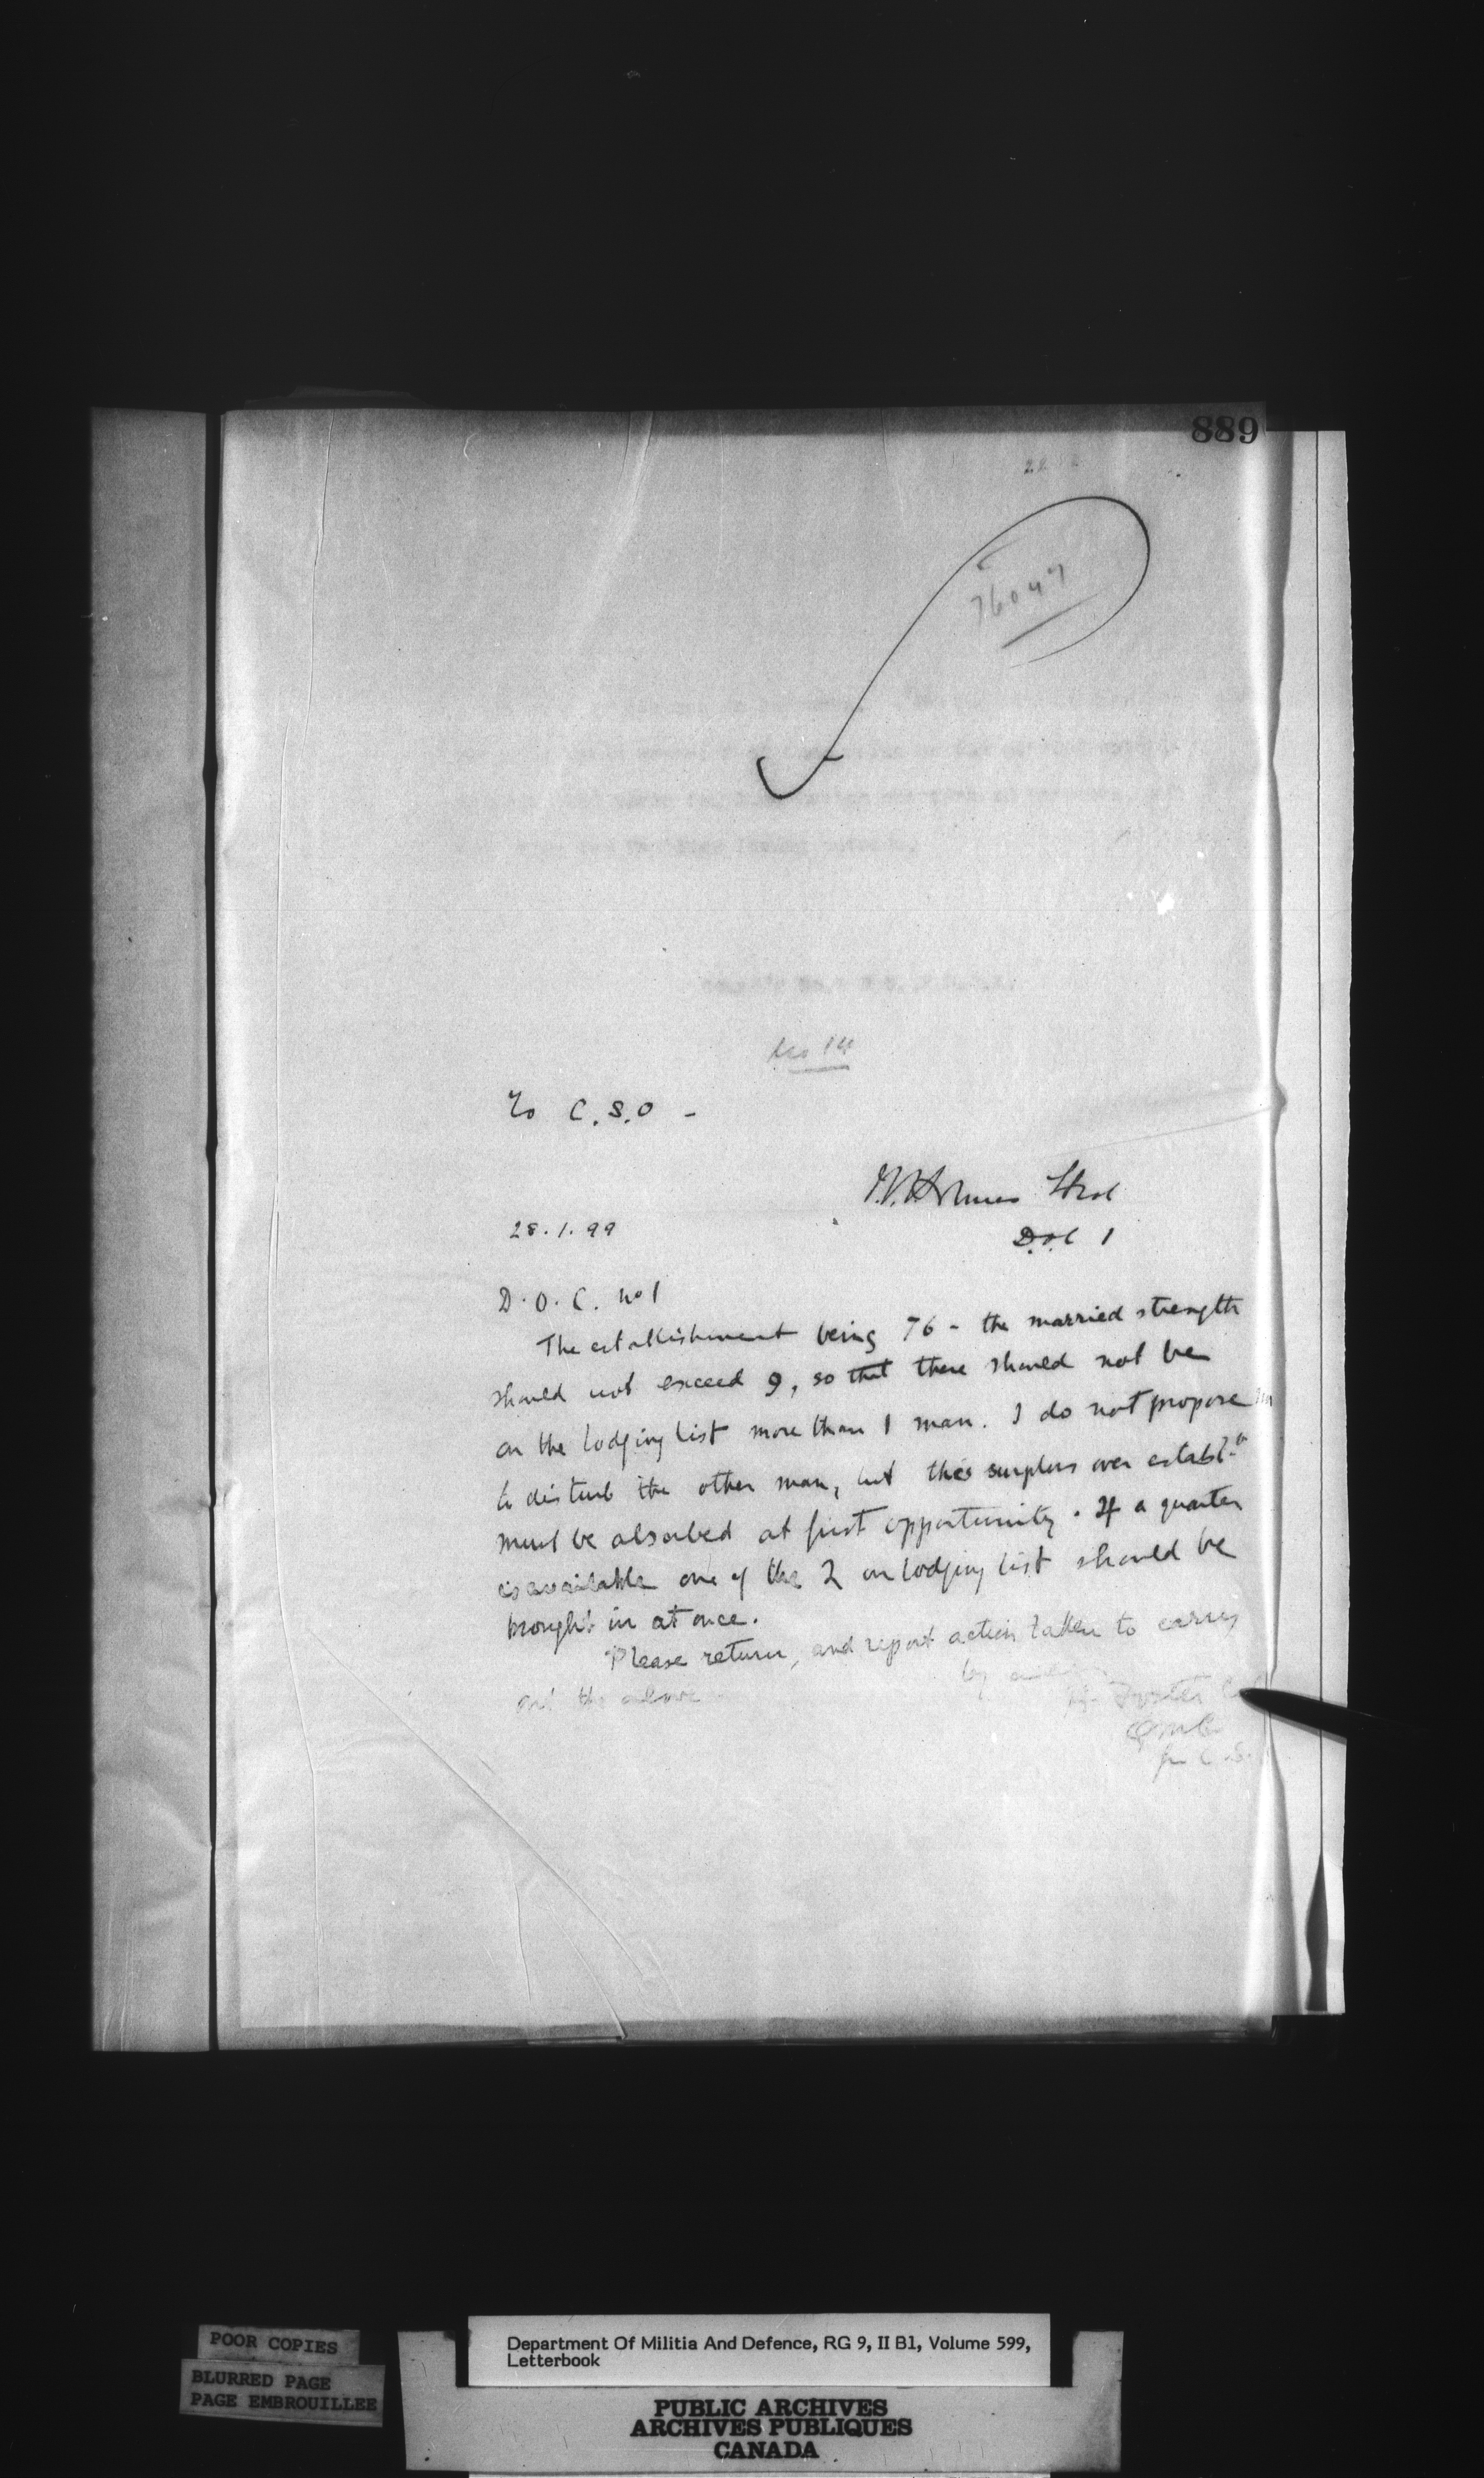 889
76047
No 14
To C.S.O -
Holmes
D.O.C 1
28.1.99
D.O.C. No 1
The establishment being 76 - the married strength
should not exceed 9, so that there should not be
on the lodging list more than 1 man. I do not propose
to disturb the other man, but this surplus over establ.
must be absorbed at first opportunity. If a quarter
is available one of the 2 on lodging list should be
brought in at once.
Please return, and report action taken to carry
out the above
by
H. Foster
Q.M.G
for C.S.
POOR COPIES
BLURRED PAGE
PAGE EMBROUILLEE
Department Of Militia And Defence, RG 9, II B1, Volume 599,
Letterbook
PUBLIC ARCHIVES
ARCHIVES PUBLIQUES
CANADA